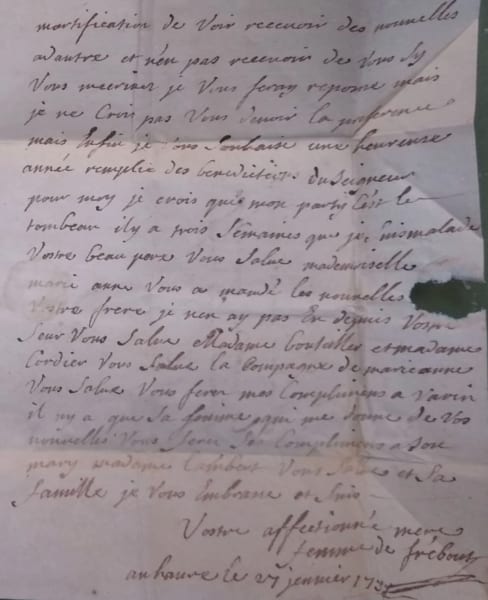 mortification de Voir recevoir des nouvelles
adautre et nen pas recevoir de vous sy
Vous mecrivez je Vous feray reponse mais
je ne Croi pas Vous devoir la preference
mais Enfin je Vous souhaise une heureuse
année remplie des benedictions du seigneur
pour moy je crois que mon party C'est le
tombeau il y a trois semaines que je suis malade
Vostre beau pere Vous Salue mademoiselle
marie anne Vous a mandé les nouvelles
Vostre frere je nen ay pas Eu depuis Vostre
seur Vous Salue Madame et madame
Cordier Vous Salue la Compagne de marieanne
Vous Salue Vous ferez mes Complimens a
il ny a que Sa femme qui me donne de Vos
nouvelles Vous ferez ses complimens a son
mary madame Lambert Vous Salue et Sa
famille je Vous Embrasse et suis
Vostre affectionnée mere
femme de frébourg
au havre le 27 jenvier